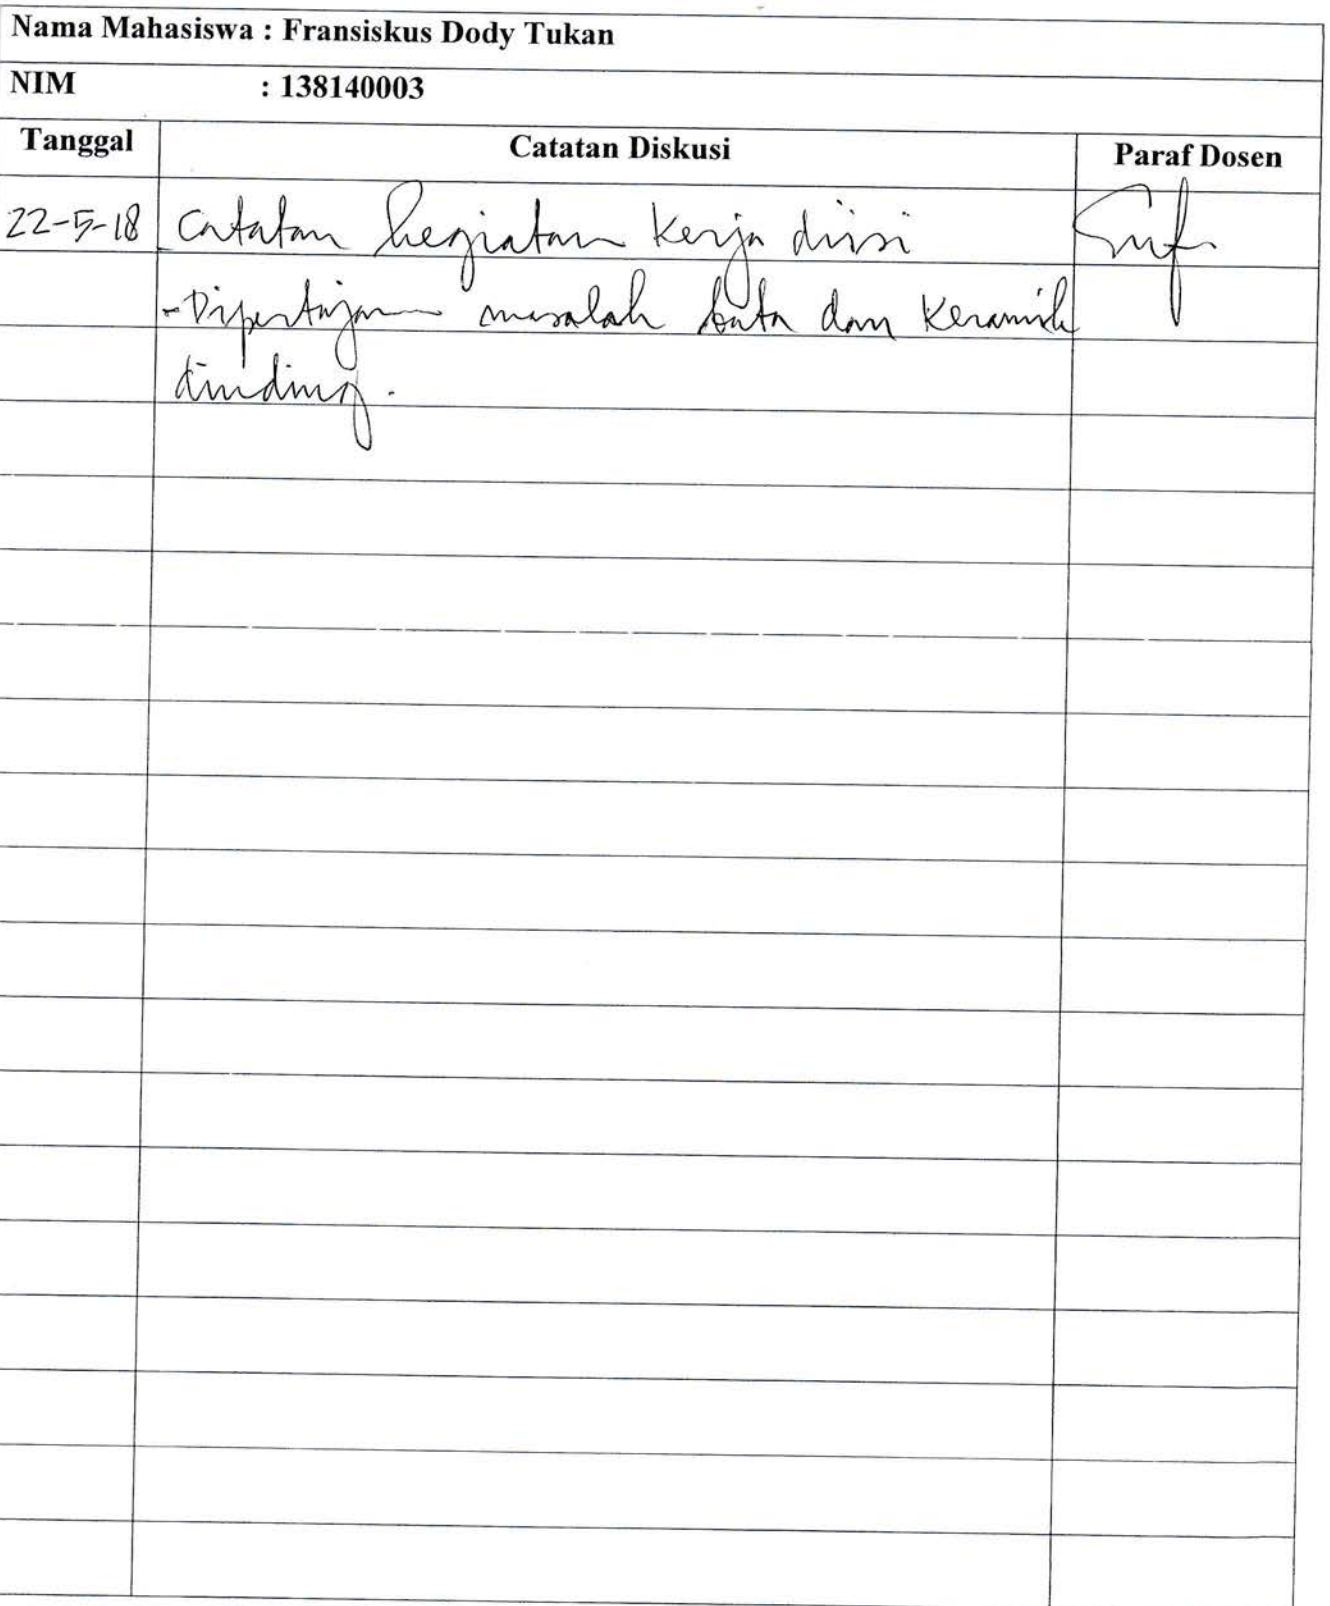 Nama Mahasiswa : Fransiskus Dody Tukan
NIM : 138140003
Tanggal Catatan Diskusi Paraf Dosen
22-5-18 Catatan kegiatan Kerja diisi
- Dipertajam masalah bata dan Keramik
dinding.